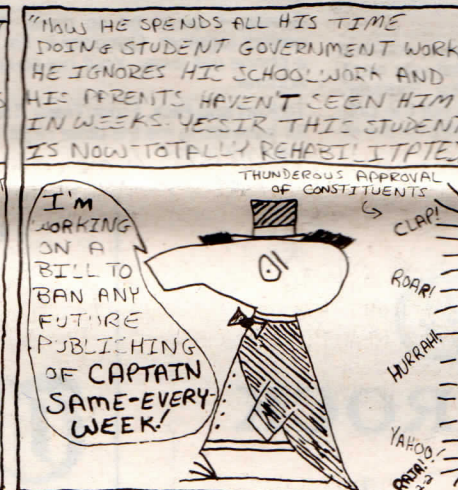 "NOW HE SPENDS ALL HIS TIME
DOING STUDENT GOVERNMENT WORK
HE IGNORES HIS SCHOOLWORK AND
HIS PARENTS HAVEN'T SEEN HIM
IN WEEKS. YESSIR THIS STUDENT
IS NOW TOTALLY REHABILITATED
THUNDEROUS APPROVAL
OF CONSTITUENTS
I'M
WORKING
ON A
BILL TO
BAN ANY
FUTURE
PUBLISHING
OF CAPTAIN
SAME-EVERY-
WEEK!
CLAP!
ROAR!
HURRAH!
YAHOO!